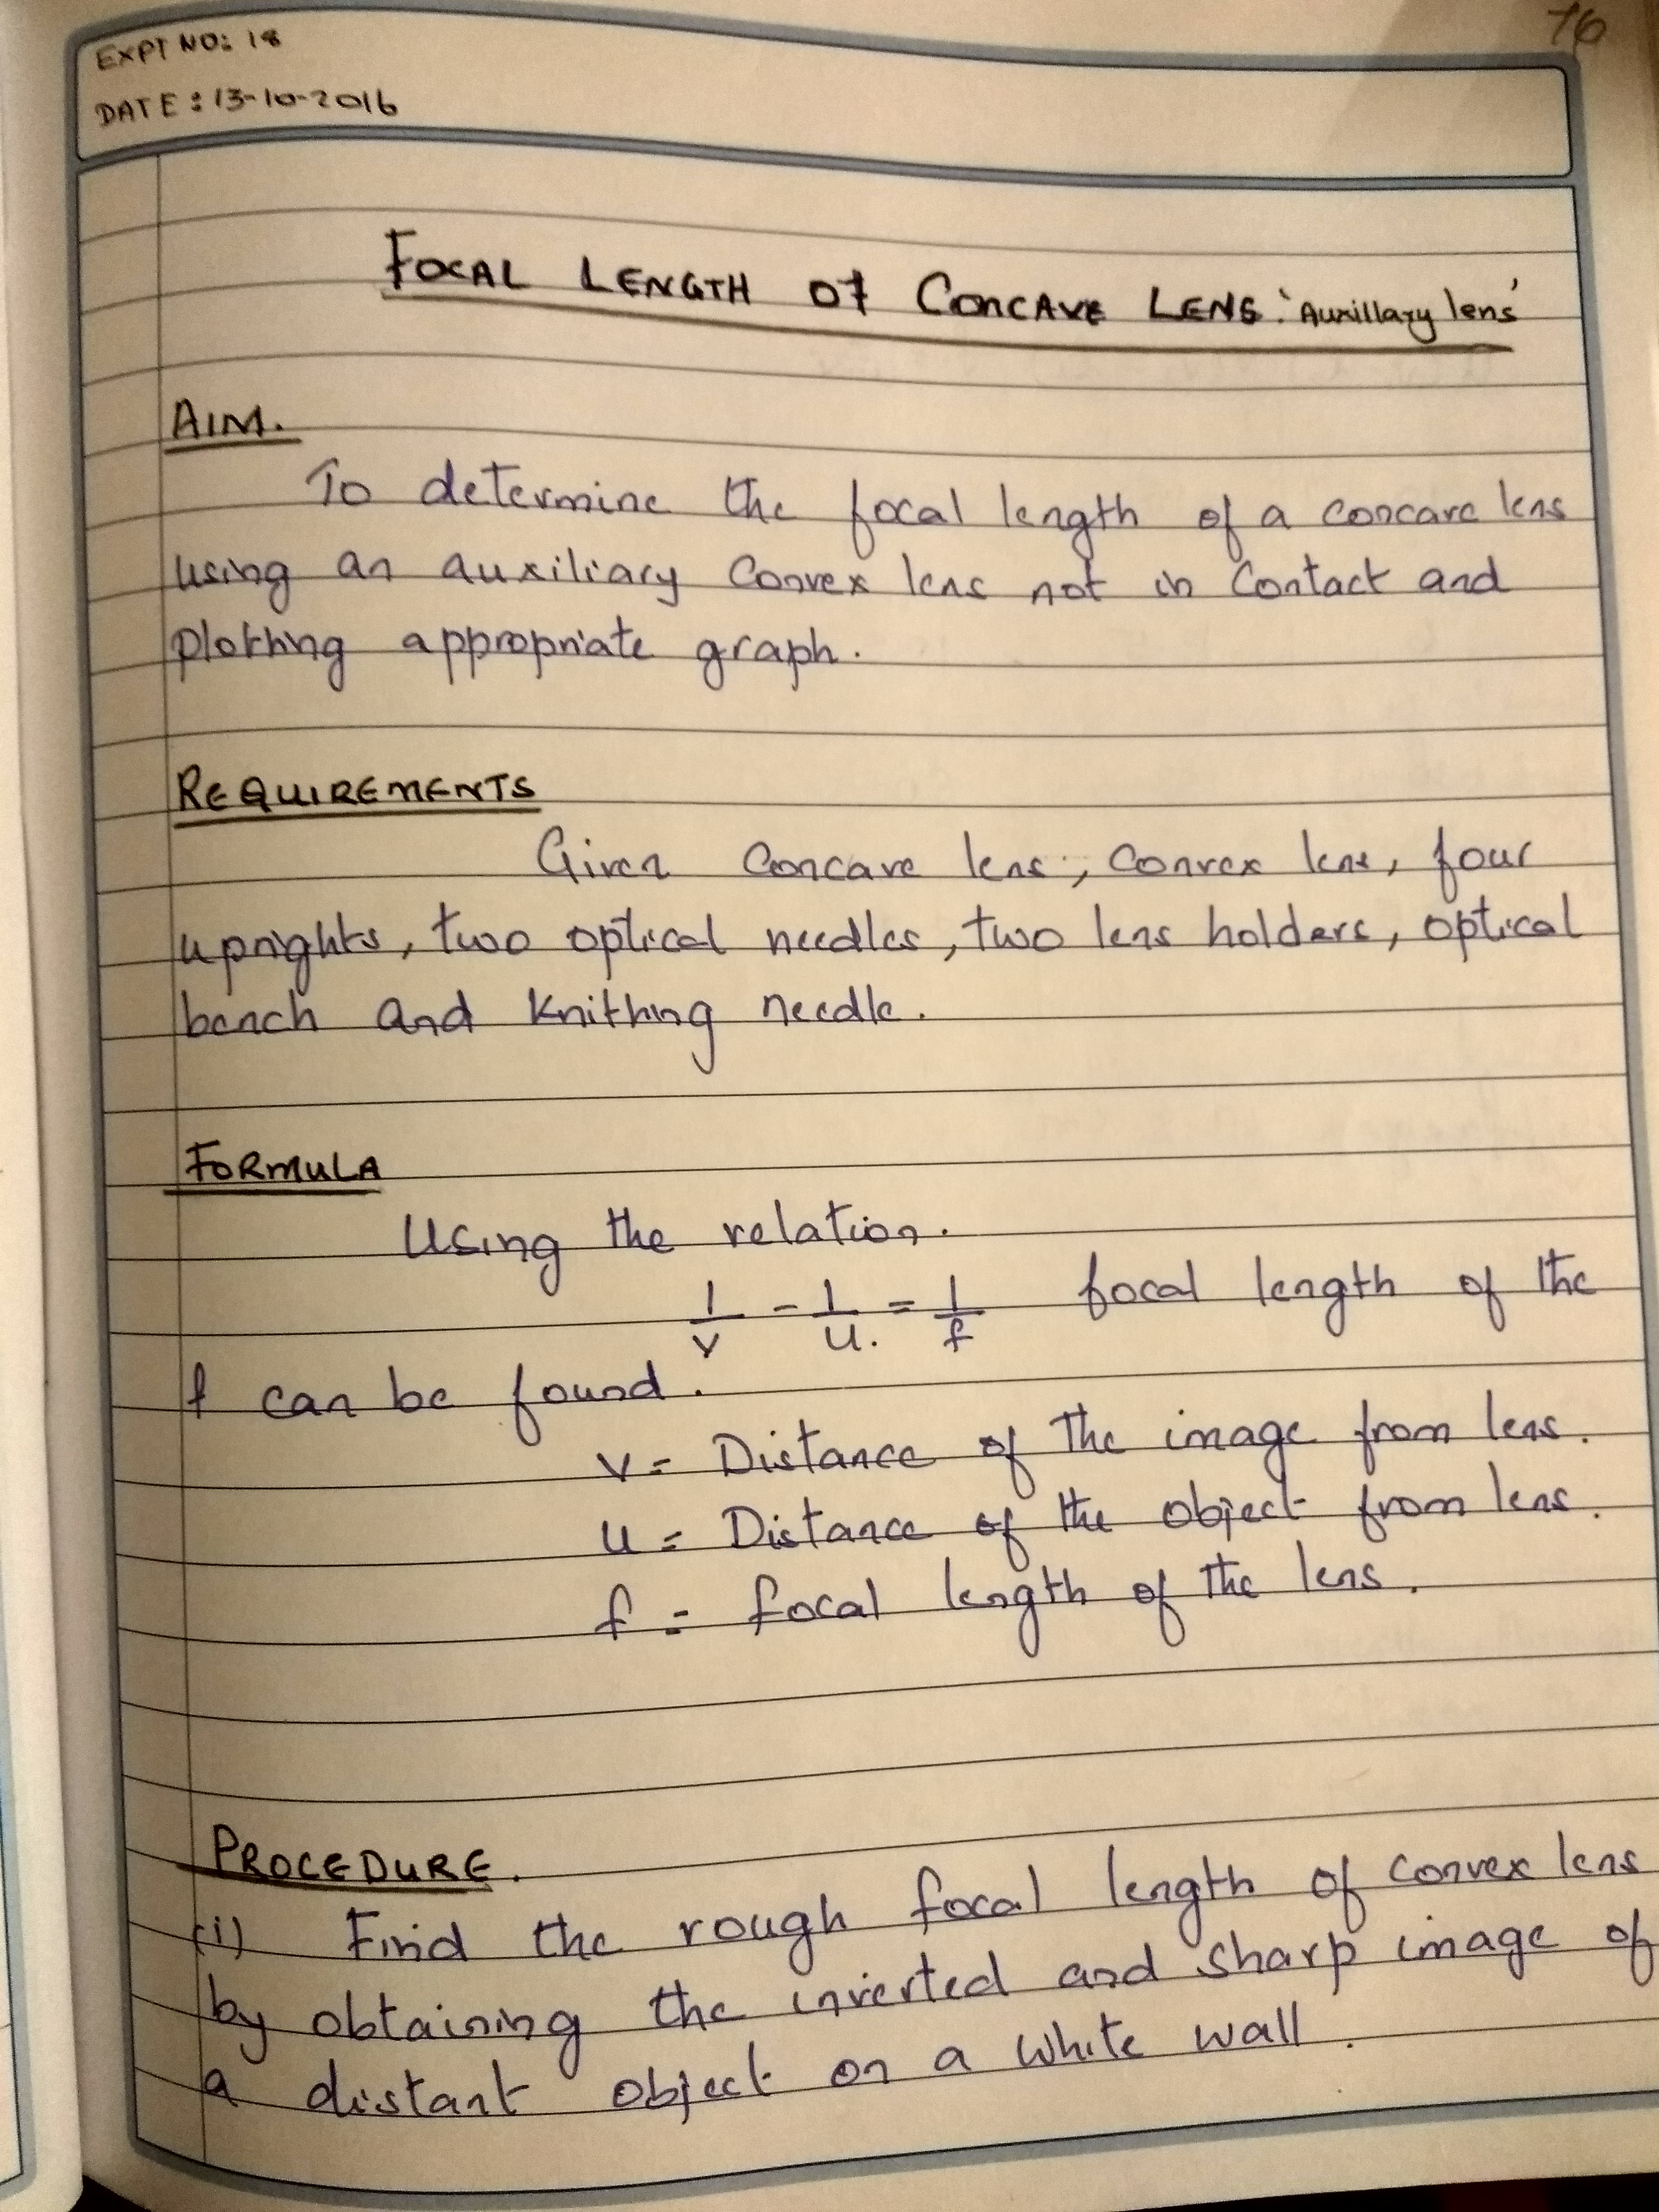 76
EXPT NO: 18
DATE: 13-10-2016
FOCAL LENGTH Of CONCAVE LENS: 'Auxillary lens'
AIM.
To determine the focal length of a concave lens
using an auxiliary Convex lens not in Contact and
plotting appropriate graph.
REQUIREMENTS
Given Concave lens, convex lens, four
uprights, two optical needles, two lens holders, optical
bench and Knitting needle.
FORMULA
Using the relation.
1/v - 1/u. = 1/f focal length of the
f can be found.
v = Distance of the image from lens.
u = Distance of the object from lens.
f = focal length of the lens.
PROCEDURE.
(i) Find the rough focal length of convex lens
by obtaining the inverted and sharp image of
a distant object on a white wall.